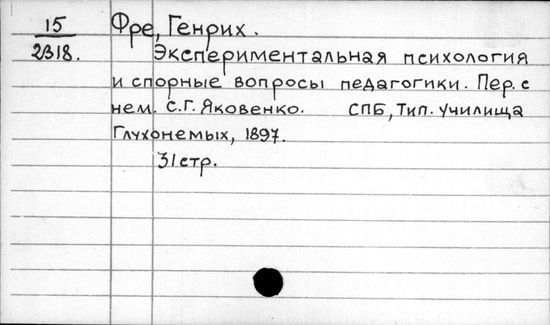 15
2318.
Фре, Генрих.
Экспериментальная психология
и спорные вопросы педагогики. Пер. с
нем. С.Г. Яковенко. СПБ, Тип. училища
Глухонемых, 1897.
31 стр.